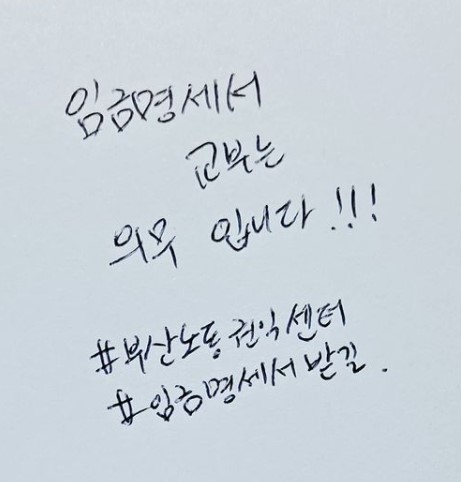 임금명세서
교부는
의무 입니다!!!
#부산노동권익센터
#임금명세서받길.